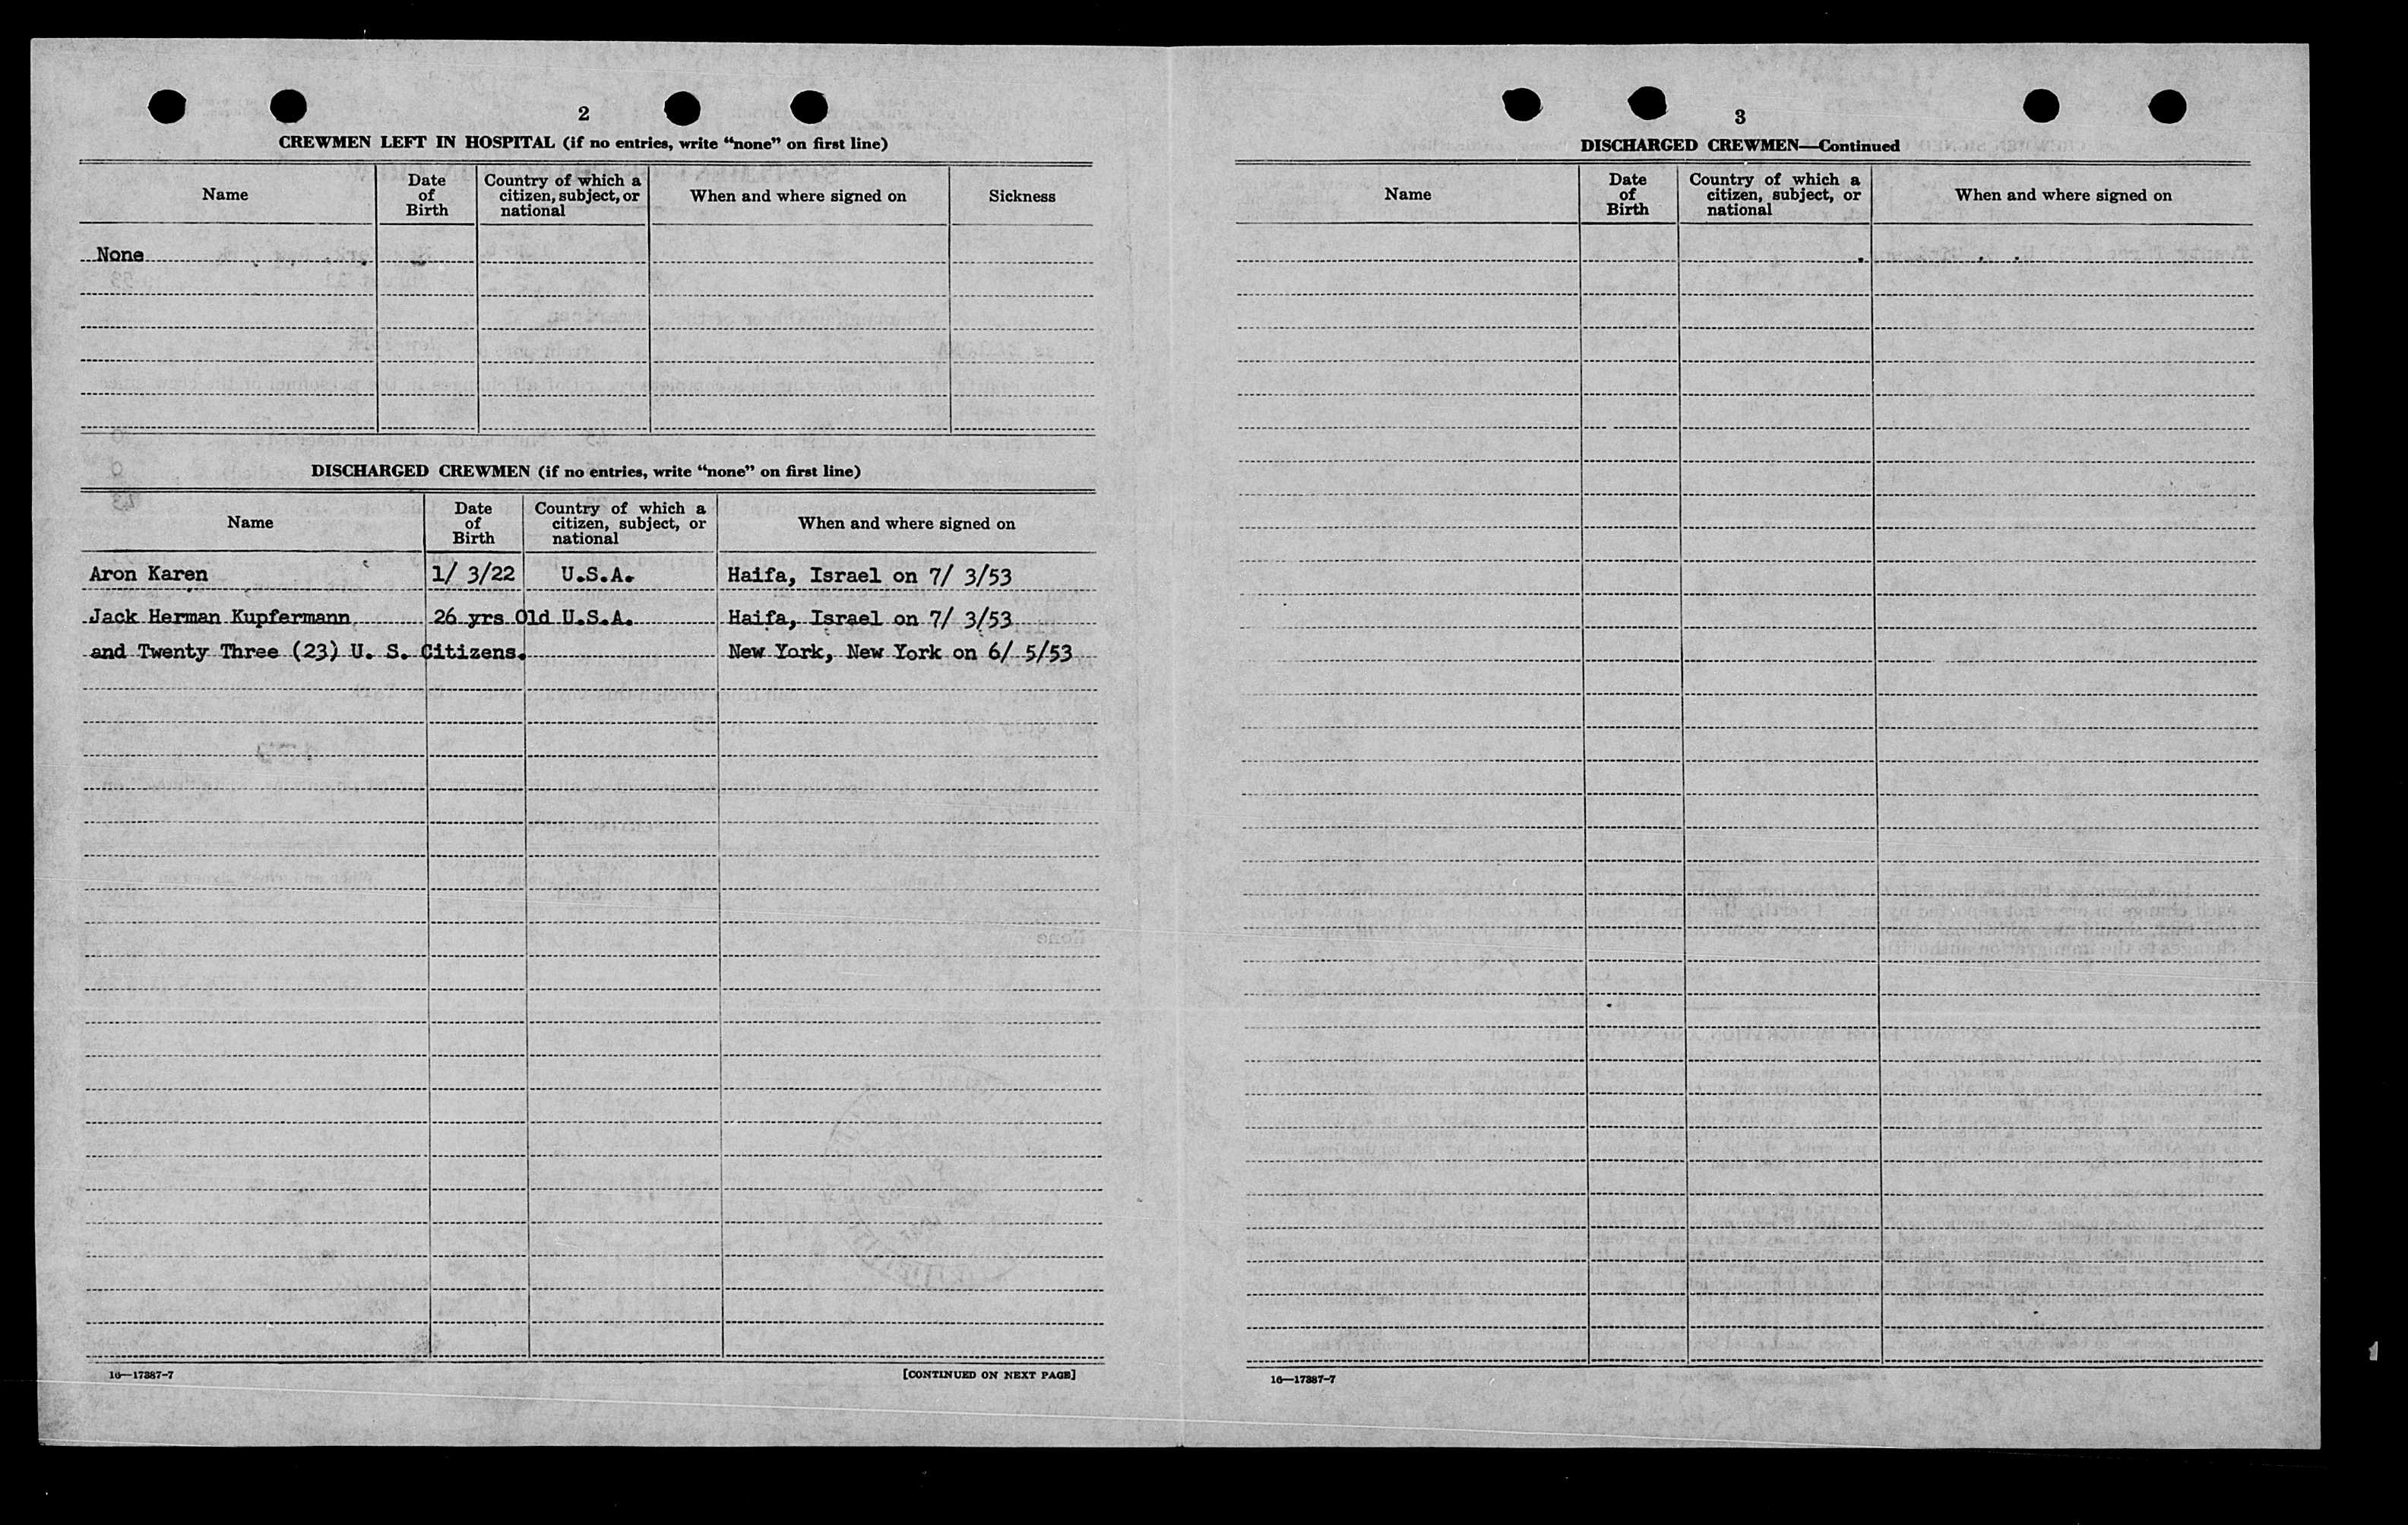 2
CREWMEN LEFT IN HOSPITAL (if no entries, write “none” on first line)
Name
Date of Birth
Country of which a citizen, subject, or national
When and where signed on
Sickness
None
DISCHARGED CREWMEN (if no entries, write “none” on first line)
Name
Date of Birth
Country of which a citizen, subject, or national
When and where signed on
Aron Karen 1/ 3/22 U.S.A. Haifa, Israel on 7/ 3/53
Jack Herman Kupfermann 26 yrs Old U.S.A. Haifa, Israel on 7/ 3/53
and Twenty Three (23) U. S. Citizens. New York, New York on 6/ 5/53
16—17387-7
[CONTINUED ON NEXT PAGE]
3
DISCHARGED CREWMEN—Continued
Name
Date of Birth
Country of which a citizen, subject, or national
When and where signed on
16—17387-7